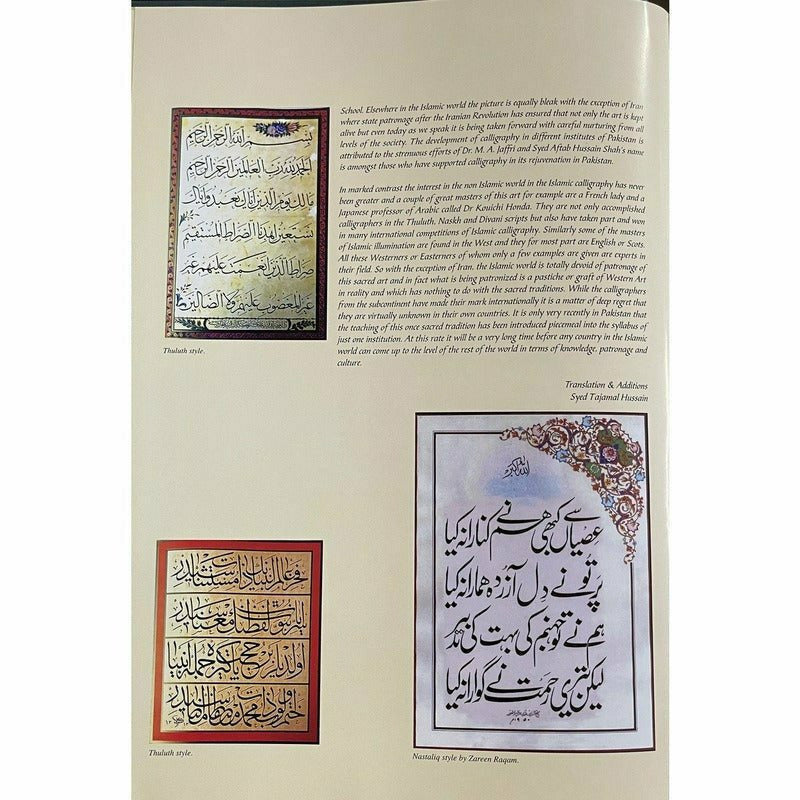 School. Elsewhere in the Islamic world the picture is equally bleak with the exception of Iran
where state patronage after the Iranian Revolution has ensured that not only the art is kept
alive but even today as we speak it is being taken forward with careful nurturing from all
levels of the society. The development of calligraphy in different institutes of Pakistan is
attributed to the strenuous efforts of Dr. M. A. Jaffri and Syed Aftab Hussain Shah's name
is amongst those who have supported calligraphy in its rejuvenation in Pakistan.
In marked contrast the interest in the non Islamic world in the Islamic calligraphy has never
been greater and a couple of great masters of this art for example are a French lady and a
Japanese professor of Arabic called Dr Kouichi Honda. They are not only accomplished
calligraphers in the Thuluth, Naskh and Divani scripts but also have taken part and won
in many international competitions of Islamic calligraphy. Similarly some of the masters
of Islamic illumination are found in the West and they for most part are English or Scots.
All these Westerners or Easterners of whom only a few examples are given are experts in
their field. So with the exception of Iran, the Islamic world is totally devoid of patronage of
this sacred art and in fact what is being patronized is a pastiche or graft of Western Art
in reality and which has nothing to do with the sacred traditions. While the calligraphers
from the subcontinent have made their mark internationally it is a matter of deep regret that
they are virtually unknown in their own countries. It is only very recently in Pakistan that
the teaching of this once sacred tradition has been introduced piecemeal into the syllabus of
just one institution. At this rate it will be a very long time before any country in the Islamic
world can come up to the level of the rest of the world in terms of knowledge, patronage and
culture.
Translation & Additions
Syed Tajamal Hussain
بسم الله الرحمن الرحيم
الحمد لله رب العالمين الرحمن الرحيم
مالك يوم الدين إياك نعبد وإياك
نستعين اهدنا الصراط المستقيم
صراط الذين انعمت عليهم
غير المغضوب عليهم ولا الضالين
Thuluth style.
الله اکبر
عصیاں سے کبھی ہم نے کنارا نہ کیا
پر تو نے دل آزردہ ہمارا نہ کیا
ہم نے تو جہنم کی بہت کی تدبیر
لیکن تری رحمت نے گوارا نہ کیا
Nastaliq style by Zareen Raqam.
Thuluth style.